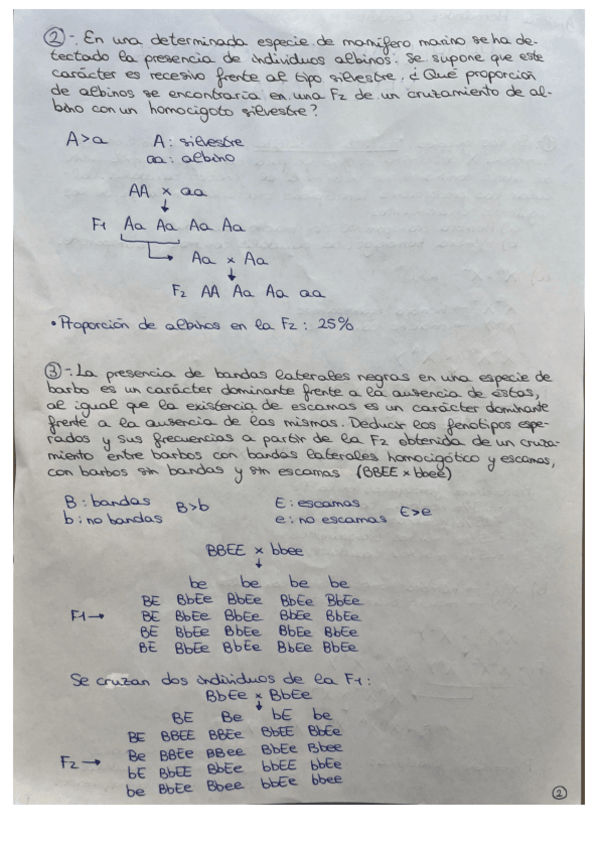 ②-. En una determinada especie de mamífero marino se ha de-
tectado la presencia de individuos albinos. Se supone que este
carácter es recesivo frente al tipo silvestre. ¿Qué proporción
de albinos se encontraría en una F2 de un cruzamiento de al-
bino con un homocigoto silvestre?
A>a A: silvestre
aa: albino
AA × aa
↓
F1 Aa Aa Aa Aa
Aa × Aa
↓
F2 AA Aa Aa aa
• Proporción de albinos en la F2: 25%
③-. La presencia de bandas laterales negras en una especie de
barbo es un carácter dominante frente a la ausencia de éstas,
al igual que la existencia de escamas es un carácter dominante
frente a la ausencia de las mismas. Deducir los fenotipos espe-
rados y sus frecuencias a partir de la F2 obtenida de un cruza-
miento entre barbos con bandas laterales homocigótico y escamas,
con barbos sin bandas y sin escamas (BBEE × bbee)
B: bandas B>b E: escamas E>e
b: no bandas e: no escamas
BBEE × bbee
↓
be be be be
BE BbEe BbEe BbEe BbEe
F1→ BE BbEe BbEe BbEe BbEe
BE BbEe BbEe BbEe BbEe
BE BbEe BbEe BbEe BbEe
Se cruzan dos individuos de la F1:
BbEe × BbEe
↓
BE Be bE be
BE BBEE BBEe BbEE BbEe
Be BBEe BBee BbEe Bbee
F2→ bE BbEE BbEe bbEE bbEe
be BbEe Bbee bbEe bbee
②